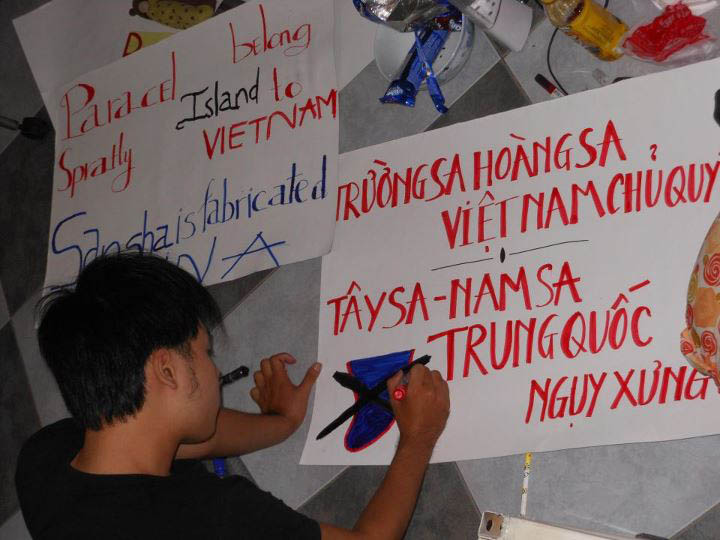 Paracel belong
Spratly Island to
VIETNAM
Sansha is fabricated
TRƯỜNG SA HOÀNG SA
VIỆT NAM CHỦ QUY
TÂY SA - NAM SA
TRUNG QUỐC
NGỤY XƯNG